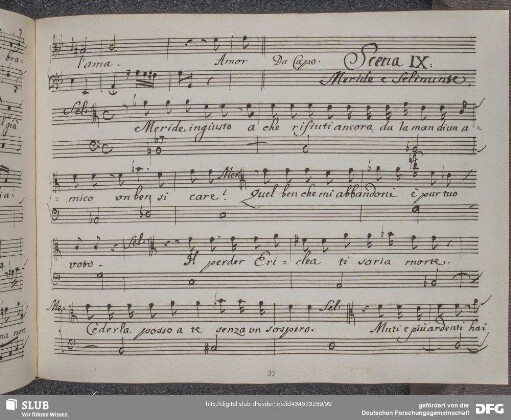 l'ama. Amor Da Capo. Scena IX:
Meride e Selinunte.
Sel:
Meride, ingiusto a che rifiuti ancora da la man d'un a-
Mer:
mico un ben sì care! Quel ben che mi abbandoni è pur tuo
Sel:
voto. Il perder Eri-clea ti saria morte.
Me: Sel:
Cederla posso a te senza un sospiro. Muti e più ardenti hai
35
SLUB
Wir führen Wissen.
gefördert von der
Deutschen Forschungsgemeinschaft
DFG